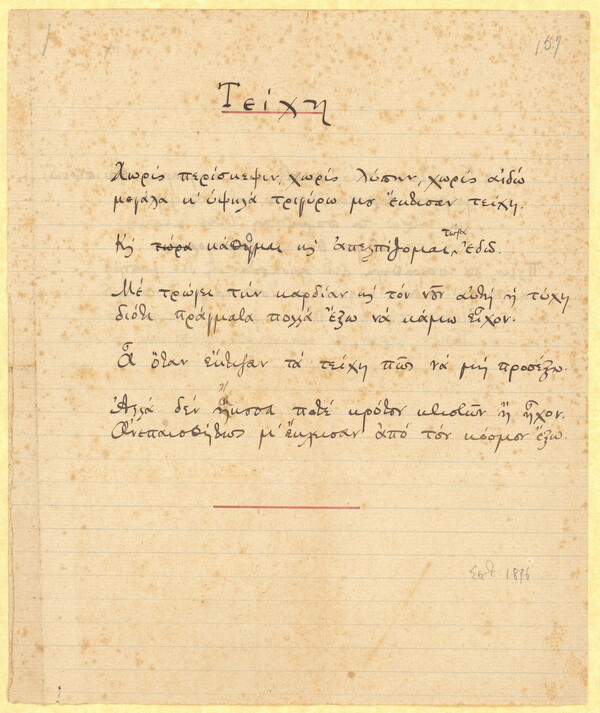 157
Τείχη
Χωρίς περίσκεψιν, χωρίς λύπην, χωρίς αἰδώ
μεγάλα κ' ὑψηλά τριγύρω μου ἔκτισαν τείχη.
Καί τώρα κάθομαι καί ἀπελπίζομαι τώρα ἐδώ.
Μέ τρώγει τήν καρδίαν καί τόν νοῦν αὐτή ἡ τύχη
διότι πράγματα πολλά ἔξω νά κάμω εἶχον.
Ἆ ὅταν ἔκτιζαν τά τείχη πῶς νά μή προσέξω.
Ἀλλά δέν ἤκουσα ποτέ κρότον κτιστῶν ἤ ἦχον.
Ἀνεπαισθήτως μ' ἔκλεισαν ἀπό τόν κόσμον ἔξω.
1896